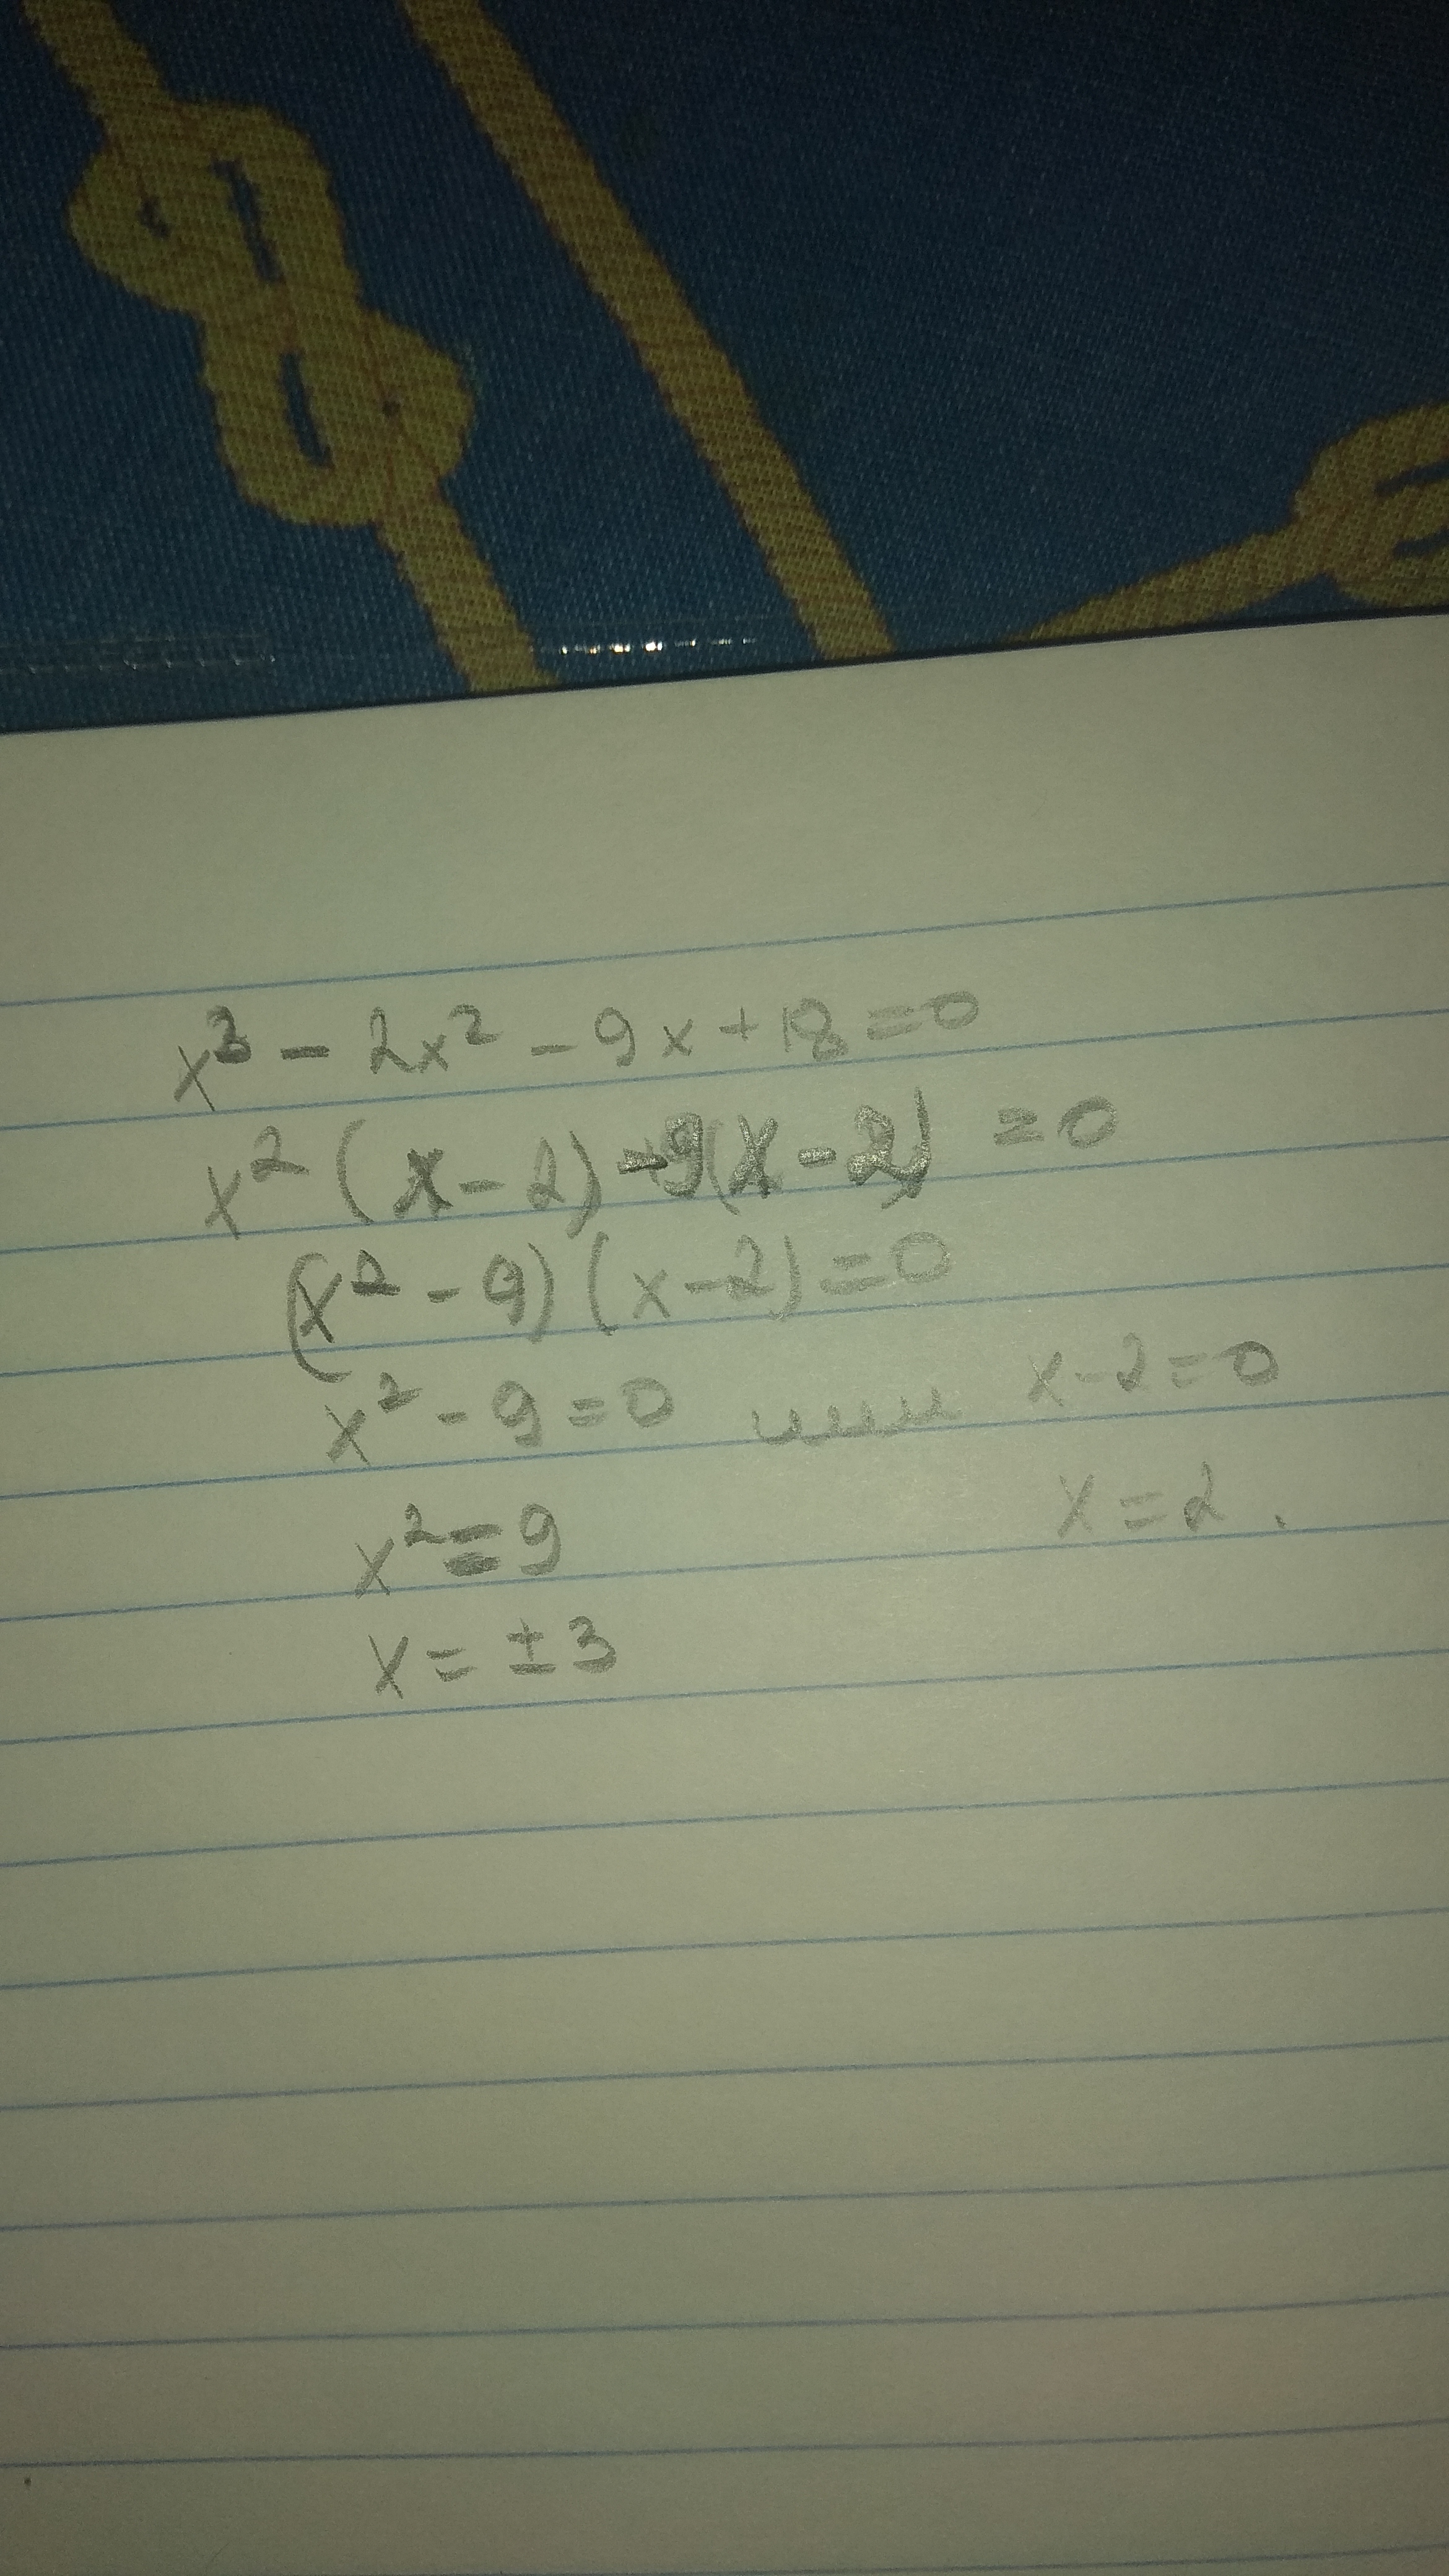 x³ - 2x² - 9x + 18 = 0
x² (x - 2) - 9(x - 2) = 0
(x² - 9) (x - 2) = 0
x² - 9 = 0 или x - 2 = 0
x² = 9 x = 2.
x = ± 3